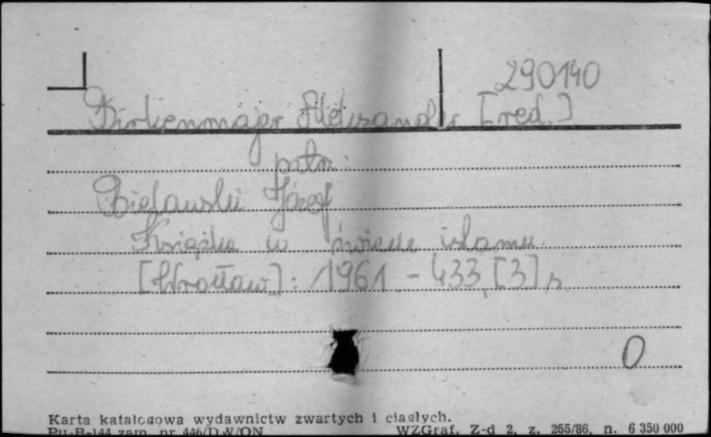 290140
Birkenmajer Aleksander [red.]
patrz:
Bielawski Józef
Książka w świecie islamu.
[Wrocław]: 1961. - 433, [3] s.
0
Karta katalogowa wydawnictw zwartych i ciągłych.
Pu-B-144 zam. nr 446/D W/ON WZGraf. Z-d 2, z. 255/86, n. 6 350 000